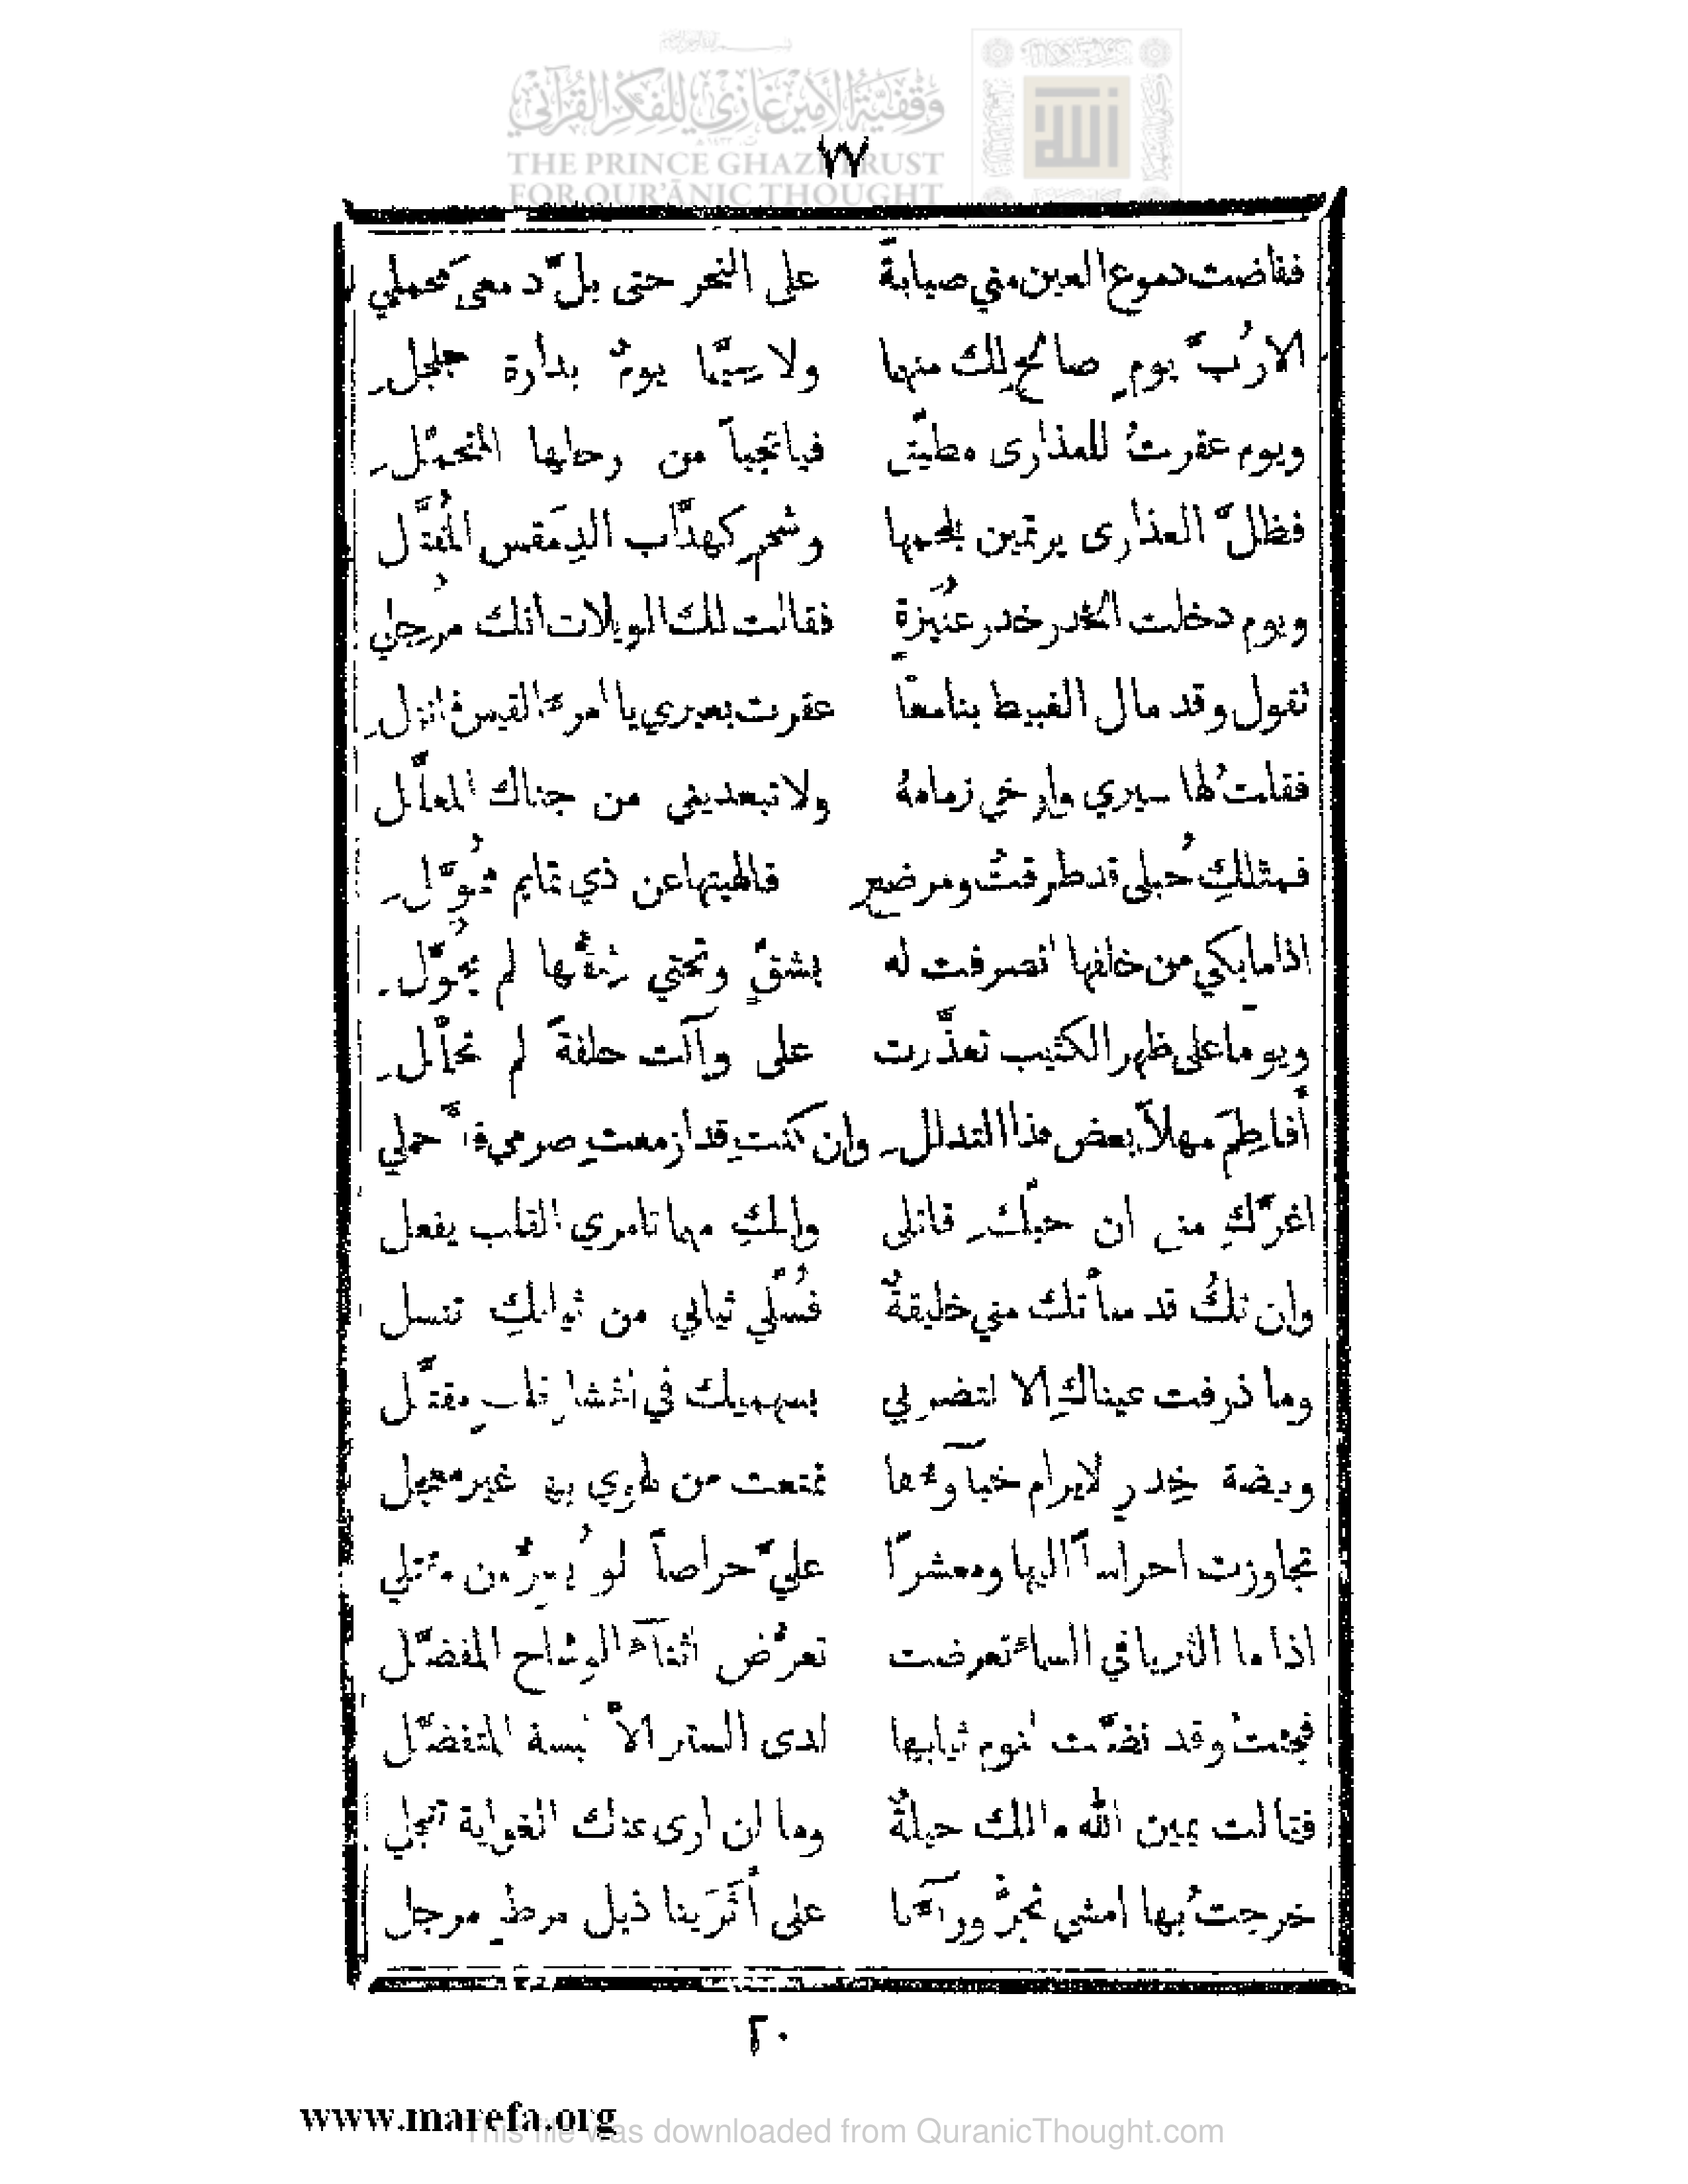 وقفية الأمير غازي للفكر القرآني
THE PRINCE GHAZI TRUST
FOR QUR'ĀNIC THOUGHT
٧٧
ففاضت دموع العين مني صبابةً على النحر حتى بلَّ دمعيَ محملي
الا رُبَّ يومٍ صالحٍ لك منها ولا سيَّما يومٌ بدارة جلجلِ
ويوم عقرتُ للعذارى مطيَّتي فيا عجباً من رحلها المتحمَّلِ
فظلَّ العذارى يرتمين بلحمها وشحمٍ كهدَّاب الدِمَقس المُفتَّل
ويوم دخلت الخدر خدر عُنَيزةٍ فقالت لك الويلات انك مُرجِلي
تقول وقد مال الغبيط بنا معاً عقرت بعيري يا امرء القيس فانزلِ
فقلتُ لها سيري وارخي زمامهُ ولا تبعديني من جناك المعلَّل
فمثلكِ حُبلى قد طرقتُ ومرضعٍ فالهيتها عن ذي تمايم مُحوَّلِ
اذا ما بكي من خلفها انصرفت له بشقٍّ وتحتي شقُّها لم يُحوَّلِ
ويوما على ظهر الكثيب تعذَّرت على وآلت حلفةً لم تحلَّلِ
أفاطِمَ مهلاً بعض هذا التدللِ وان كنتِ قد ازمعتِ صرمي فاَجملي
اغرَّكِ منى ان حبَّكِ قاتلى وانكِ مهما تامري القلب يفعل
وان تكُ قد ساَتك مني خليقةٌ فسُلّي ثيابي من ثيابكِ تنسل
وما ذرفت عيناكِ الا لتضربي بسهميك في اعشار قلبٍ مقتَّل
وبيضة خِدرٍ لا يرام خبآوءها تمتعت من لهوي بها غير معجل
تجاوزت احراساً اليها ومعشراً عليَّ حراصاً لو يُسِرُّون مقتلي
اذا ما الثريا في السماء تعرضت تعرُّض اثنآء الوشاح المفصَّل
فجئت وقد نضَّت لنوم ثيابها لدى الستر الاَّ لبسة المتفضَّل
فقالت يمين الله مالك حيلةٌ وما ان ارى عنك الغواية تنجلي
خرجتُ بها امشي تجرُّ ورآءنا على أَثَرَينا ذيل مرطٍ مرجل
٢٠
www.marefa.org
This file was downloaded from QuranicThought.com